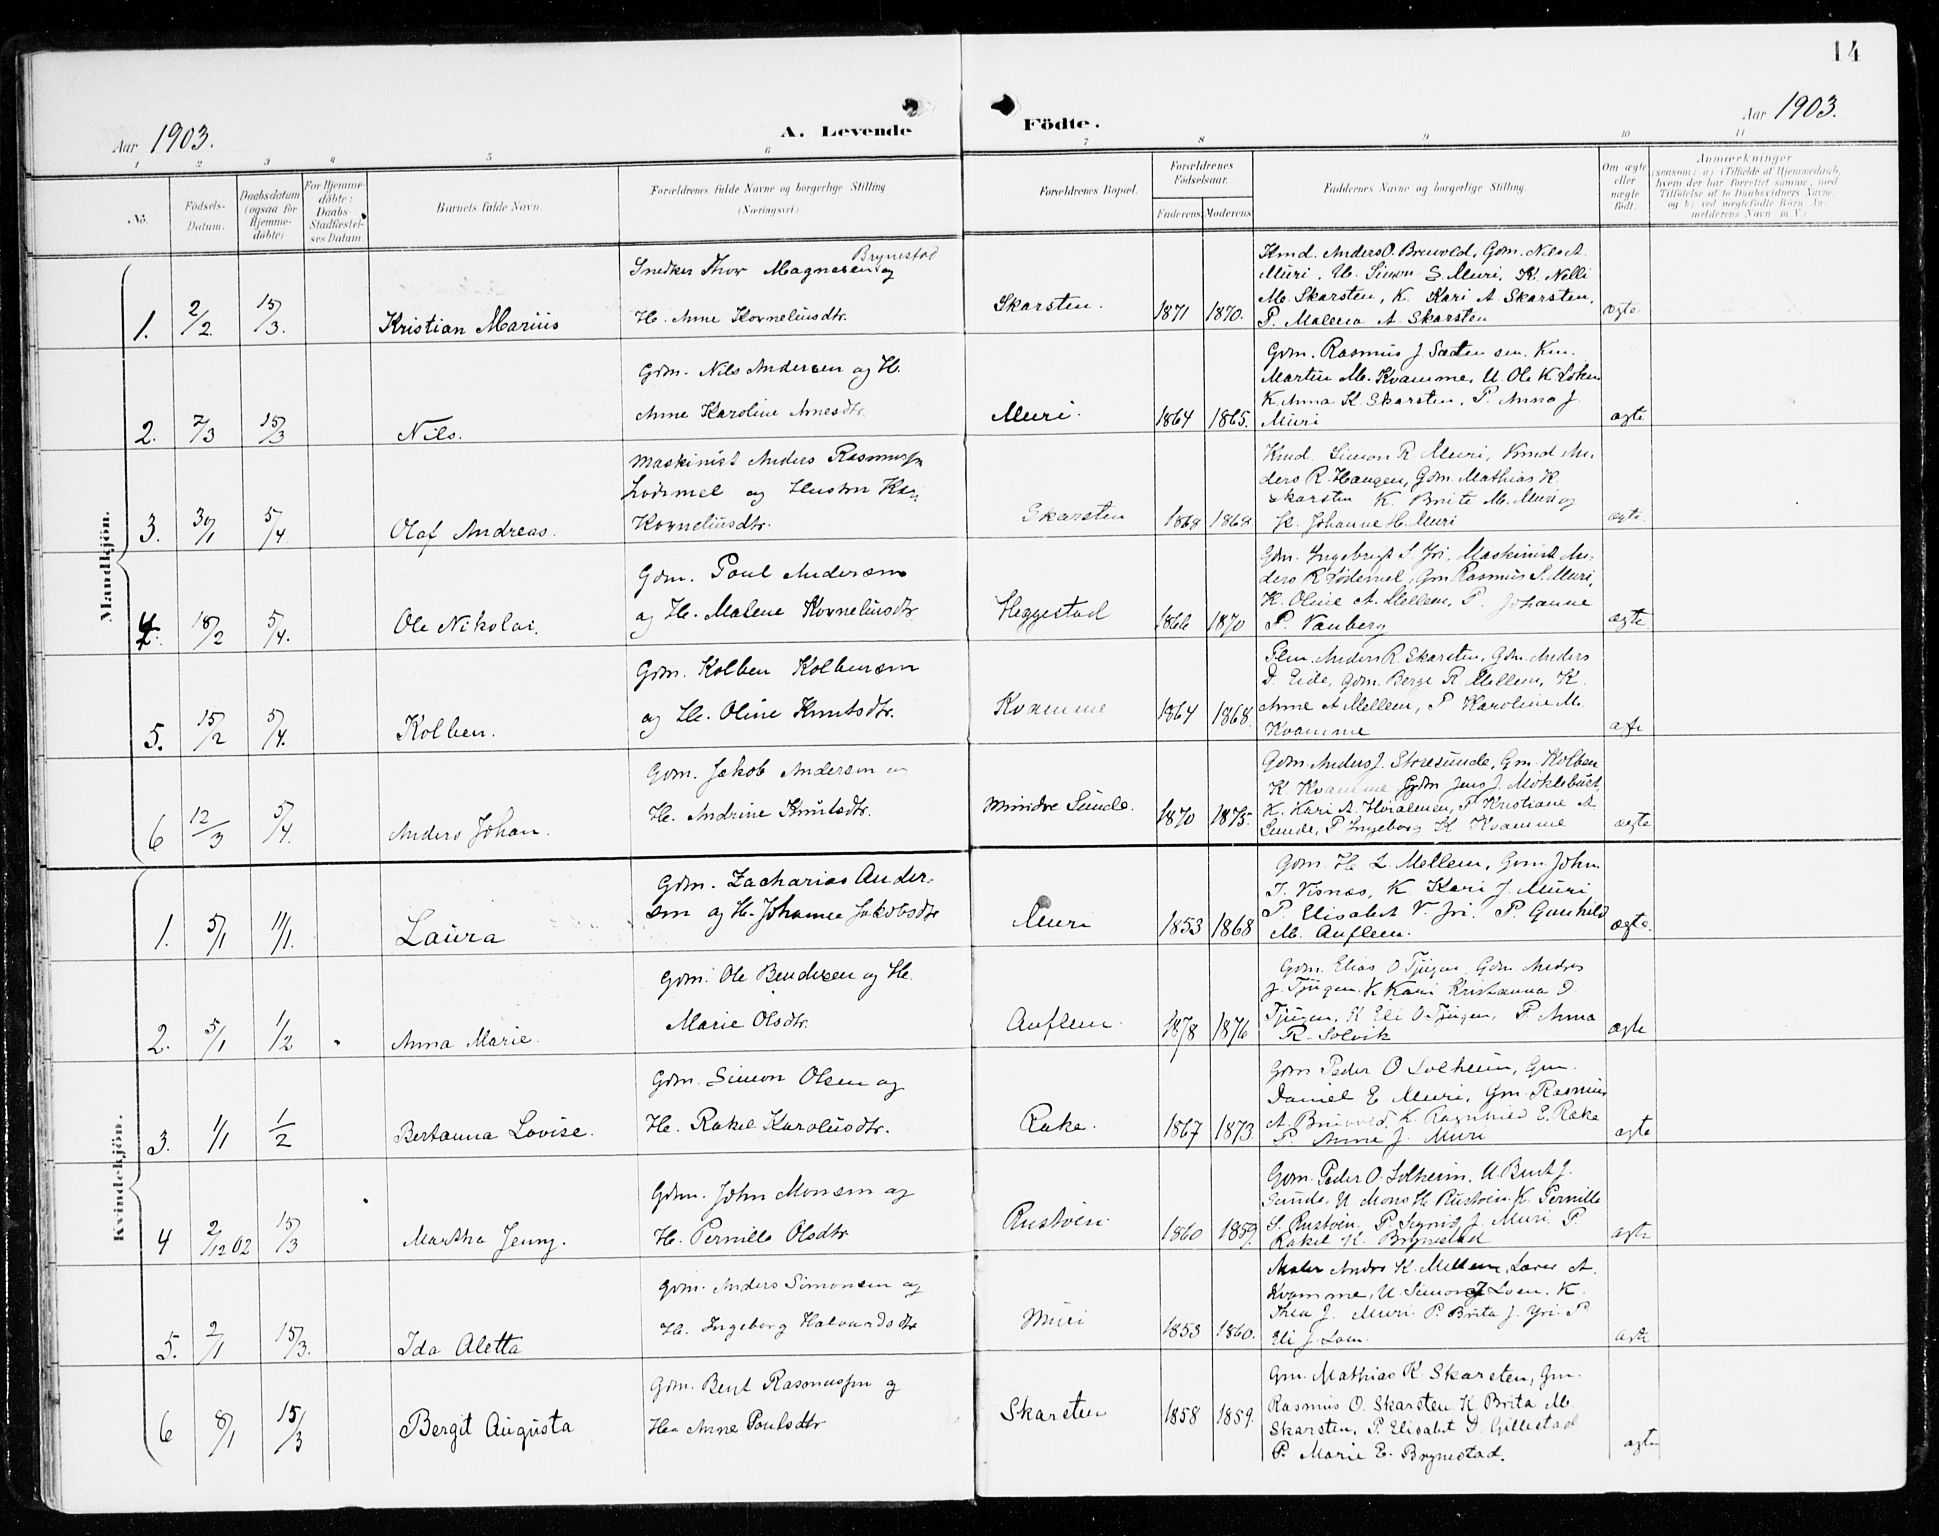 14
Aar 1903.
A. Levende
Födte.
Aar 1903.
1 2 3 4 5 6 7 8 9 10 11
No.
Födsels-
Datum.
Daabsdatum
(ogsaa for
Hjemme-
döbte)
For Hjemme-
döbte:
Daabs-
Stadfæstel-
ses Datum
Barnets fulde Navn.
Forældrenes fulde Navne og borgerlige Stilling
(Næringsvei.)
Forældrenes Bopæl.
Forældrenes
Födselsaar.
Faderens Moderens
Faddernes Navne og borgerlige Stilling.
Om ægte
eller
uægte
födt.
Anmærkninger
Mandkjön.
1. 2/2 15/3. Kristian Marius
Snedker Thor Magnesen Brynestad og
H. Anne Korneliusdtr.
Skarsten. 1871 1870.
Kmd. Anders O. Bruvold, Gdm. Nils A.
Muri, U. Simon S. Muri, K. Nelli
M. Skarsten, K. Kari A. Skarsten,
P. Malena A. Skarsten
ægte
2. 7/3 15/3 Nils.
Gdm. Nils Andersen og H.
Anne Karoline Arnesdtr.
Muri. 1864 1865.
Gdm. Rasmus J. Sæten sen. Km.
Martin M. Kvamme, U. Ole K. Loken
K. Anna K. Skarsten, P. Anna J.
Muri
ægte
3. 30/1 5/4 Olaf Andreas.
Maskinist Anders Rasmussen
Lödemel og Hustru Kari
Korneliusdtr.
Skarsten 1868 1868
Kmd. Simon R. Muri, Kmd An-
ders R. Haugen, Gdm. Mathias K.
Skarsten K. Brite M. Muri og
K. Johanne H. Muri
ægte
4. 18/2 5/4. Ole Nikolai.
Gdm. Poul Andersen
og H. Malene Korneliusdtr
Heggestad 1866 1870
Gdm. Ingebrigt S. Yri, Maskinist An-
ders R. Lödemel, Gm Rasmus S. Muri,
K. Oline A. Mellem, P. Johanne
P. Vanberg
ægte
5. 15/2 5/4. Kolben.
Gdm. Kolben Kolbensen
og H. Oline Knutsdtr.
Kvamme 1864 1868.
Anders R. Skarsten, Gdm. Anders
D. Eide, Gdm. Berge R. Mellem, K.
Anne A Mellem, P Karoline M.
Kvamme
6 12/3 5/4. Anders Johan.
Gdm. Jakob Andersen og
H. Andrine Knutsdtr.
Mindre Sunde. 1870 1875.
Gdm. Anders J. Storesunde, Gm. Kolben
K Kvamme Gdm Jens J. Möklebust,
K. Kari A. P Kristiane A
Sunde, P Ingeborg K Kvamme
ægte
Kvindekjön.
1. 5/1 11/1. Laura
Gdm. Zacharias Ander-
sen og H. Johanne Jakobsdtr
Muri 1853 1868
Gdm. H. L. Mellem, Gdm. John
T. Visnæs, K Kari J. Muri
P. Elisabet V. Yri. P. Gunhild
M. Auflem.
ægte.
2. 5/1 1/2 Anna Marie.
Gdm. Ole Bendixen og H.
Marie Olsdtr.
Auflem. 1878 1876
Gdm. Elias O Tjugen, Gdm. Andreas
J. Tjugen. K. Kari Kristianna D.
Tjugen, K Eli O. Tjugen, P. Anna
R. Solvik
ægte
3. 1/1 1/2 Bertanna Lovise.
Gdm. Simon Olsen og
H. Rakel Karolusdtr.
Rake. 1867 1873
Gdm Peder O Solheim, Gm.
Daniel E Muri, Gm. Rasmus
A. Bruvold, K. Ragnhild E. Rake
P. Anne J. Muri
ægte
4 2/12 02 15/3 Martha Jenny.
Gdm. John Monsen og
H. Pernille Olsdtr
Rustöen 1860 1859.
Gdm. Peder O. Solheim, U Bent J.
Sunde, U Mons H Rustöen K. Pernille
S. Rustöen P. Signid J. Muri P.
Rakel H. Brynestad
ægte
5. 2/1 15/3. Ida Aletta
Gdm. Anders Simonsen og
H. Ingeborg Halvardsdtr
Muri 1853 1860.
Maler Andr. K. Mellem, Lærer A.
Kvamme, U. Simon J Loen. K.
Thea J. Muri P. Brita J. Yri P
Eli J. Loen.
ægte
6 8/1 15/3 Bergit Augusta
Gdm. Bent Rasmussen og
H. Anne Poulsdtr
Skarsten 1858 1859.
Gm. Mathias K. Skarsten, Gm.
Rasmus O. Skarsten K. Brita M.
Skarsten, P. Elisabet D. Gillestad
P. Marie E. Brynestad.
ægte